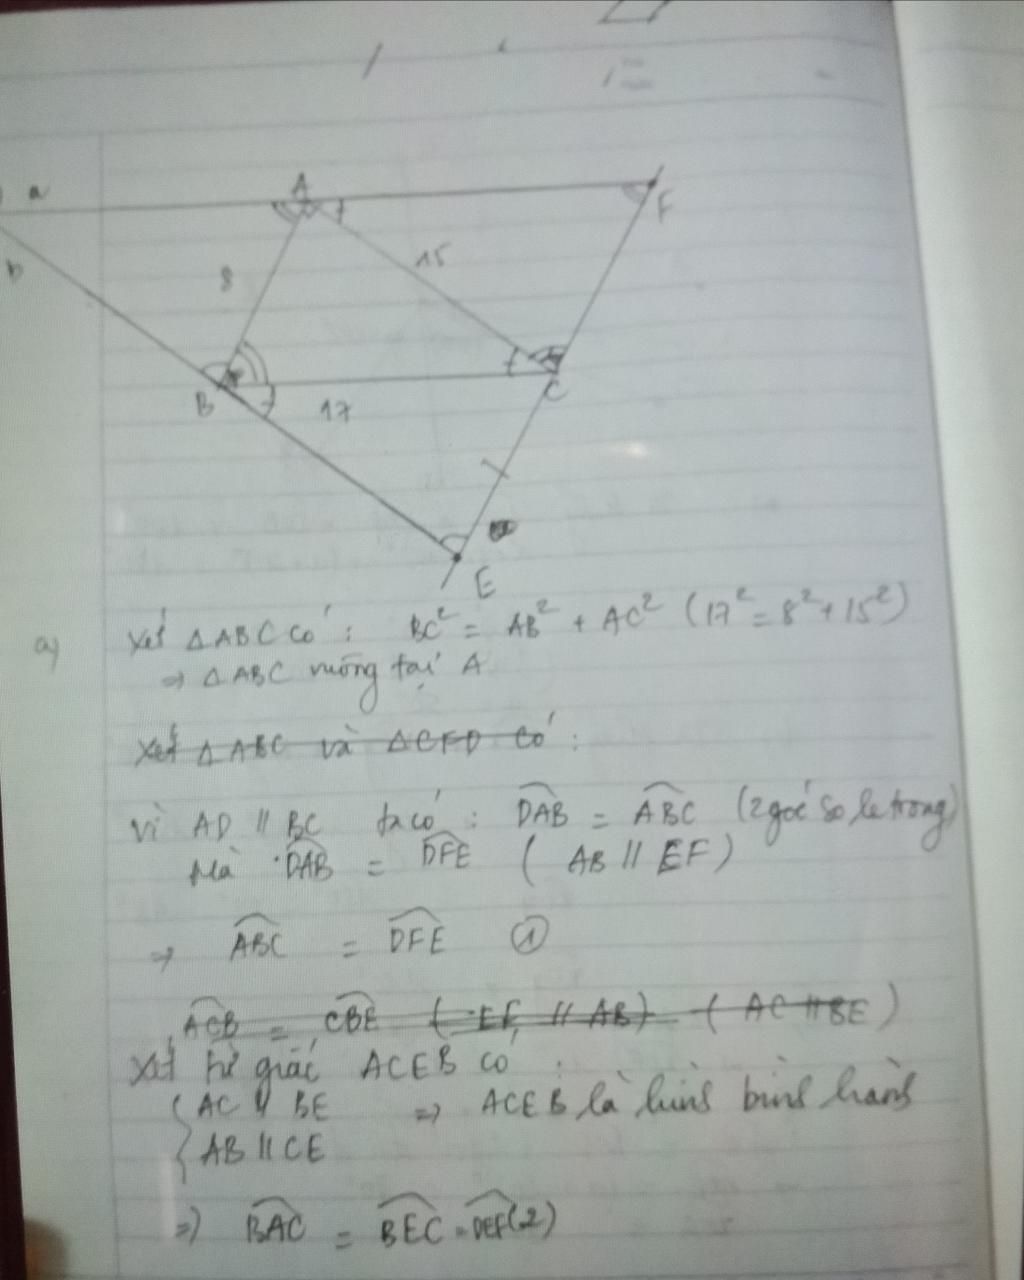 a
A
F
b
8
15
B
17
C
E
a) Xét ΔABC có : BC² = AB² + AC² (17² = 8² + 15²)
⇒ ΔABC vuông tại A
Xét ΔABC và ΔCFD có :
Vì AD // BC ta có : DAB = ABC (2 góc so le trong)
Mà DAB = DFE ( AB // EF )
⇒ ABC = DFE ①
ACB = CBE ( EF // AB ) ( AC // BE )
Xét tứ giác ACEB có :
AC // BE ⇒ ACEB là hình bình hành
AB // CE
⇒) BAC = BEC = DEF (2)